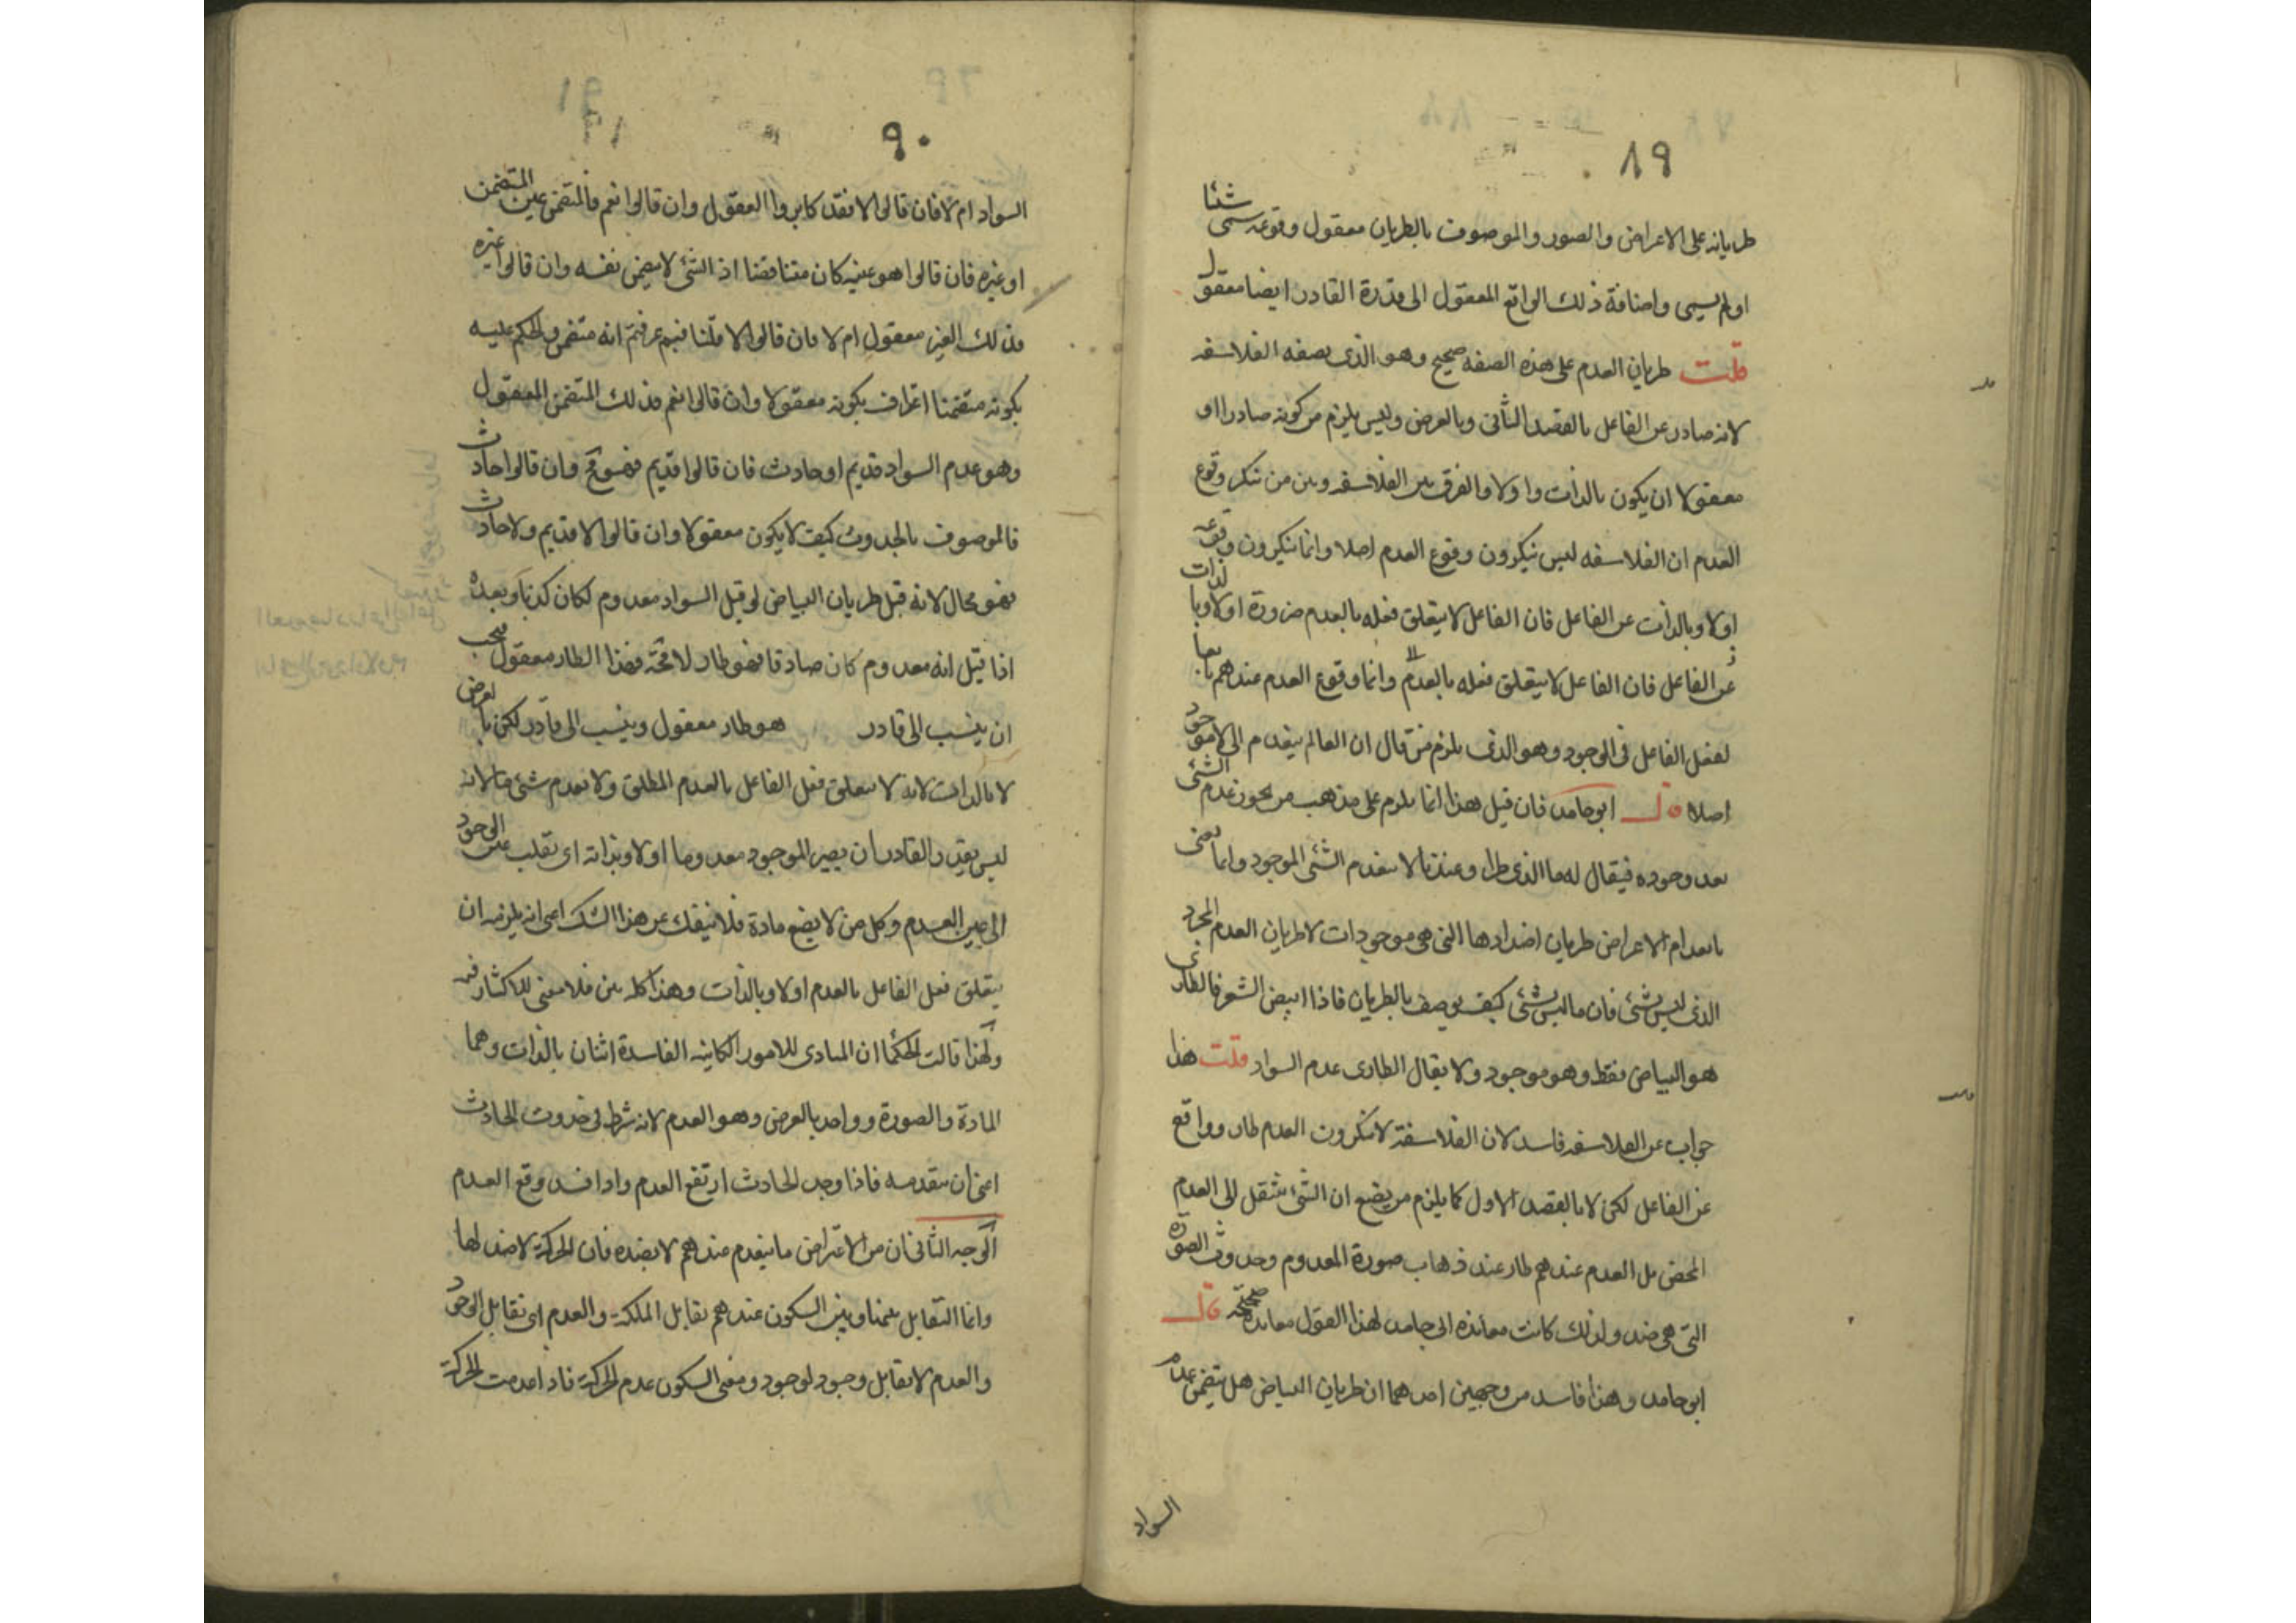 ٨٩
طريانه على الاعراض والصور والموصوف بالطريان معقول وقوعه سمى شئا
او لم يسمى واضافة ذلك الواقع المعقول الى قدرة القادر ايضا معقول
قلت طريان العدم على هذه الصفه صحيح وهو الذى يصفه الفلاسفه
لانه صادر عن الفاعل بالقصد الثانى وبالعرض وليس يلزم من كونه صادرا او
معقولا ان يكون بالذات واولا والفرق بين الفلاسفه وبين من ينكر وقوع
العدم ان الفلاسفه ليس ينكرون وقوع العدم اصلا وانما ينكرون وقوعه
اولا وبالذات عن الفاعل فان الفاعل لا يتعلق فعله بالعدم ضرورة اولا وبالذات
عن الفاعل فان الفاعل لا يتعلق فعله بالعدم وانما وقوع العدم عندهم تابعا
لفعل الفاعل فى الوجود وهو الذى يلزم من قال ان العالم ينعدم الى لا موجود
اصلا قال ابو حامد فان قيل هذا انما يلزم على مذهب من يجوز عدم الشئ
بعد وجوده فيقال له ما الذى طرا وعندنا لا ينعدم الشئ الموجود وانما معنى
بانعدام الاعراض طريان اضدادها التى هى موجودات لا طريان العدم المجرد
الذى ليس بشئ فان ما ليس بشئ كيف يوصف بالطريان فاذا ابيض الشعر فالطارى
هو البياض فقط وهو موجود ولا يقال الطارى عدم السواد قلت هذا
جواب عن الفلاسفه فاسد لان الفلاسفة لا ينكرون العدم طار وواقع
عن الفاعل لكن لا بالقصد الاول كما يلزم من يضع ان الشئ ينتقل الى العدم
المحض بل العدم عندهم طار عند ذهاب صورة المعدوم وحدوث الصورة
التى هى ضد ولذلك كانت معانده ابى حامد لهذا القول معانده صحيحة قال
ابو حامد وهذا فاسد من وجهين احدهما ان طريان البياض هل يتضمن عدم
السواد
٩٠
السواد ام لا فان قالوا لا فقد كابروا العقول وان قالوا نعم فالمتضمن عين المتضمن
او غيره فان قالوا هو عينه كان متناقضا اذ الشئ لا يتضمن نفسه وان قالوا غيره
فذلك الغير معقول ام لا فان قالوا لا قلنا فبم عرفتم انه متضمن والحكم عليه
بكونه متضمنا اعتراف بكونه معقولا وان قالوا نعم فذلك المتضمن المعقول
وهو عدم السواد قديم او حادث فان قالوا قديم فهو مح وان قالوا حادث
فالموصوف بالحدوث كيف لا يكون معقولا وان قالوا لا قديم ولا حادث
فهو محال لانه قبل طريان البياض لو قيل السواد معدوم لكان كذبا وبعده
اذا قيل انه معدوم كان صادقا فهو طار لا محة فهذا الطار معقول فيجب
ان ينسب الى قادر هو طار معقول وينسب الى قادر لكن بالعرض
لا بالذات لانه لا يتعلق فعل الفاعل بالعدم المطلق ولا بعدم شئ ما لانه
ليس يقدر القادر ان يصير الموجود معدوما اولا وبذاته اى يقلب عين الوجود
الى عين العدم وكل من لا يضع مادة فلا ينفك عن هذا الشك اعى انه يلزمه ان
يتعلق فعل الفاعل بالعدم اولا وبالذات وهذا كله بين فلا معنى للاكثار فيه
ولهذا قالت الحكما ان المبادى للامور الكاينه الفاسدة اثنان بالذات وهما
المادة والصورة وواحد بالعرض وهو العدم لانه شرط فى حدوث الحادث
اعنى ان يتقدمه فاذا وجد الحادث ارتفع العدم واذا فسد وقع العدم
الوجه الثانى ان من الاعتراض ما ينعدم عندهم لا بضده فان الحركة لا ضد لها
وانما التقابل بينها وبين السكون عندهم تقابل الملكة والعدم اى تقابل الوجود
والعدم لا تقابل وجود لوجود ومعنى السكون عدم الحركة فاذا عدمت الحركة